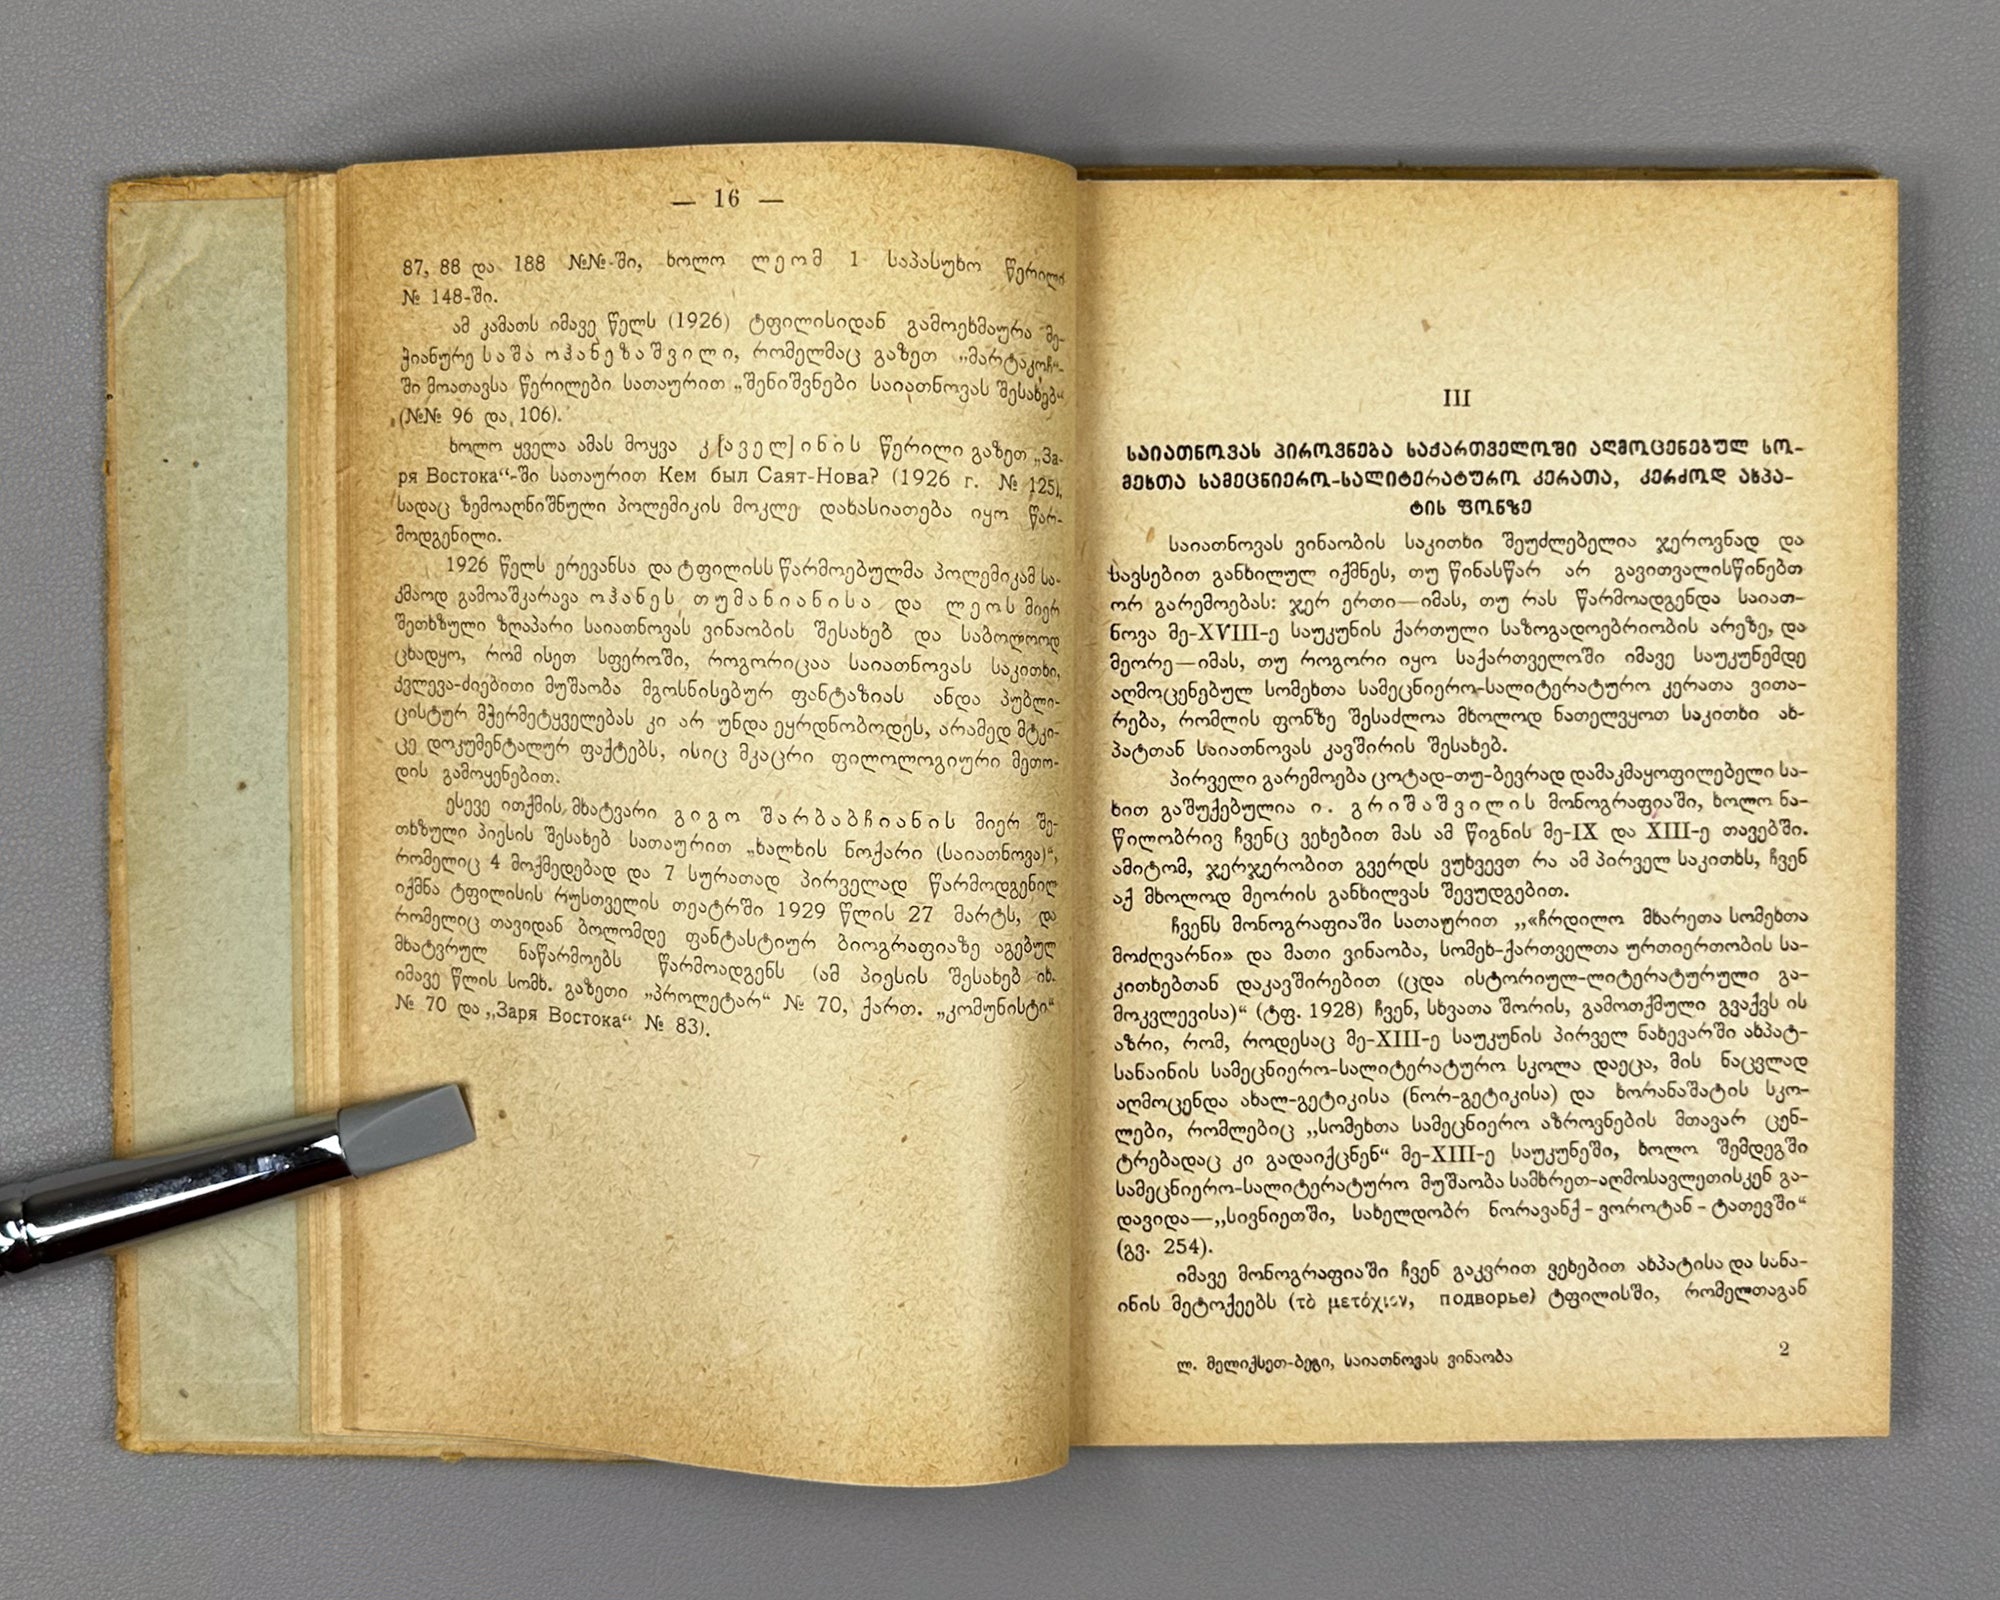 — 16 —
87, 88 და 188 №№-ში, ხოლო ლეომ 1 საპასუხო წერილი
№ 148-ში.
ამ კამათს იმავე წელს (1926) ტფილისიდან გამოეხმაურა მე-
ჭიანურე საშა ოჰანეზაშვილი, რომელმაც გაზეთ „მარტაკოჩ“-
ში მოათავსა წერილები სათაურით „შენიშვნები საიათნოვას შესახებ“
(№№ 96 და 106).
ხოლო ყველა ამას მოყვა კ[აველ]ინის წერილი გაზეთ „За-
ря Востока“-ში სათაურით Кем был Саят-Нова? (1926 г. № 125),
სადაც ზემოაღნიშნული პოლემიკის მოკლე დახასიათება იყო წარ-
მოდგენილი.
1926 წელს ერევანსა და ტფილისს წარმოებულმა პოლემიკამ სა-
კმაოდ გამოაშკარავა ოჰანეს თუმანიანისა და ლეოს მიერ
შეთხზული ზღაპარი საიათნოვას ვინაობის შესახებ და საბოლოოდ
ცხადყო, რომ ისეთ სფეროში, როგორიცაა საიათნოვას საკითხი,
კვლევა-ძიებითი მუშაობა მგოსნისებურ ფანტაზიას ანდა პუბლი-
ცისტურ მჭერმეტყველებას კი არ უნდა ეყრდნობოდეს, არამედ მტკი-
ცე დოკუმენტალურ ფაქტებს, ისიც მკაცრი ფილოლოგიური მეთო-
დის გამოყენებით.
ესევე ითქმის მხატვარი გიგო შარბაბჩიანის მიერ შე-
თხზული პიესის შესახებ სათაურით „ხალხის ნოქარი (საიათნოვა)“,
რომელიც 4 მოქმედებად და 7 სურათად პირველად წარმოდგენილ
იქმნა ტფილისის რუსთველის თეატრში 1929 წლის 27 მარტს, და
რომელიც თავიდან ბოლომდე ფანტასტიურ ბიოგრაფიაზე აგებულ
მხატვრულ ნაწარმოებს წარმოადგენს (ამ პიესის შესახებ იხ.
იმავე წლის სომხ. გაზეთი „პროლეტარ“ № 70, ქართ. „კომუნისტი“
№ 70 და „Заря Востока“ № 83).
III
საიათნოვას პიროვნება საქართველოში აღმოცენებულ სო-
მეხთა სამეცნიერო-სალიტერატურო კერათა, კერძოდ ახპა-
ტის ფონზე
საიათნოვას ვინაობის საკითხი შეუძლებელია ჯეროვნად და
სავსებით განხილულ იქმნეს, თუ წინასწარ არ გავითვალისწინებთ
ორ გარემოებას: ჯერ ერთი—იმას, თუ რას წარმოადგენდა საიათ-
ნოვა მე-XVIII-ე საუკუნის ქართული საზოგადოებრიობის არეზე, და
მეორე—იმას, თუ როგორი იყო საქართველოში იმავე საუკუნემდე
აღმოცენებულ სომეხთა სამეცნიერო-სალიტერატურო კერათა ვითა-
რება, რომლის ფონზე შესაძლოა მხოლოდ ნათელვყოთ საკითხი ახ-
პატთან საიათნოვას კავშირის შესახებ.
პირველი გარემოება ცოტად-თუ-ბევრად დამაკმაყოფილებელი სა-
ხით გაშუქებულია ი. გრიშაშვილის მონოგრაფიაში, ხოლო ნა-
წილობრივ ჩვენც ვეხებით მას ამ წიგნის მე-IX და XIII-ე თავებში.
ამიტომ, ჯერჯერობით გვერდს ვუხვევთ რა ამ პირველ საკითხს, ჩვენ
აქ მხოლოდ მეორის განხილვას შევუდგებით.
ჩვენს მონოგრაფიაში სათაურით „«ჩრდილო მხარეთა სომეხთა
მოძღვარნი» და მათი ვინაობა, სომეხ-ქართველთა ურთიერთობის სა-
კითხებთან დაკავშირებით (ცდა ისტორიულ-ლიტერატურული გა-
მოკვლევისა)“ (ტფ. 1928) ჩვენ, სხვათა შორის, გამოთქმული გვაქვს ის
აზრი, რომ, როდესაც მე-XIII-ე საუკუნის პირველ ნახევარში ახპატ-
სანაინის სამეცნიერო-სალიტერატურო სკოლა დაეცა, მის ნაცვლად
აღმოცენდა ახალ-გეტიკისა (ნორ-გეტიკისა) და ხორანაშატის სკო-
ლები, რომლებიც „სომეხთა სამეცნიერო აზროვნების მთავარ ცენ-
ტრებადაც კი გადაიქცნენ“ მე-XIII-ე საუკუნეში, ხოლო შემდეგში
სამეცნიერო-სალიტერატურო მუშაობა სამხრეთ-აღმოსავლეთისკენ გა-
დავიდა—„სივნიეთში, სახელდობრ ნორავანქ-ვოროტან-ტათევში“
(გვ. 254).
იმავე მონოგრაფიაში ჩვენ გაკვრით ვეხებით ახპატისა და სანა-
ინის მეტოქეებს (τὸ μετόχιον, подворье) ტფილისში, რომელთაგან
ლ. მელიქსეთ-ბეგი, საიათნოვას ვინაობა
2